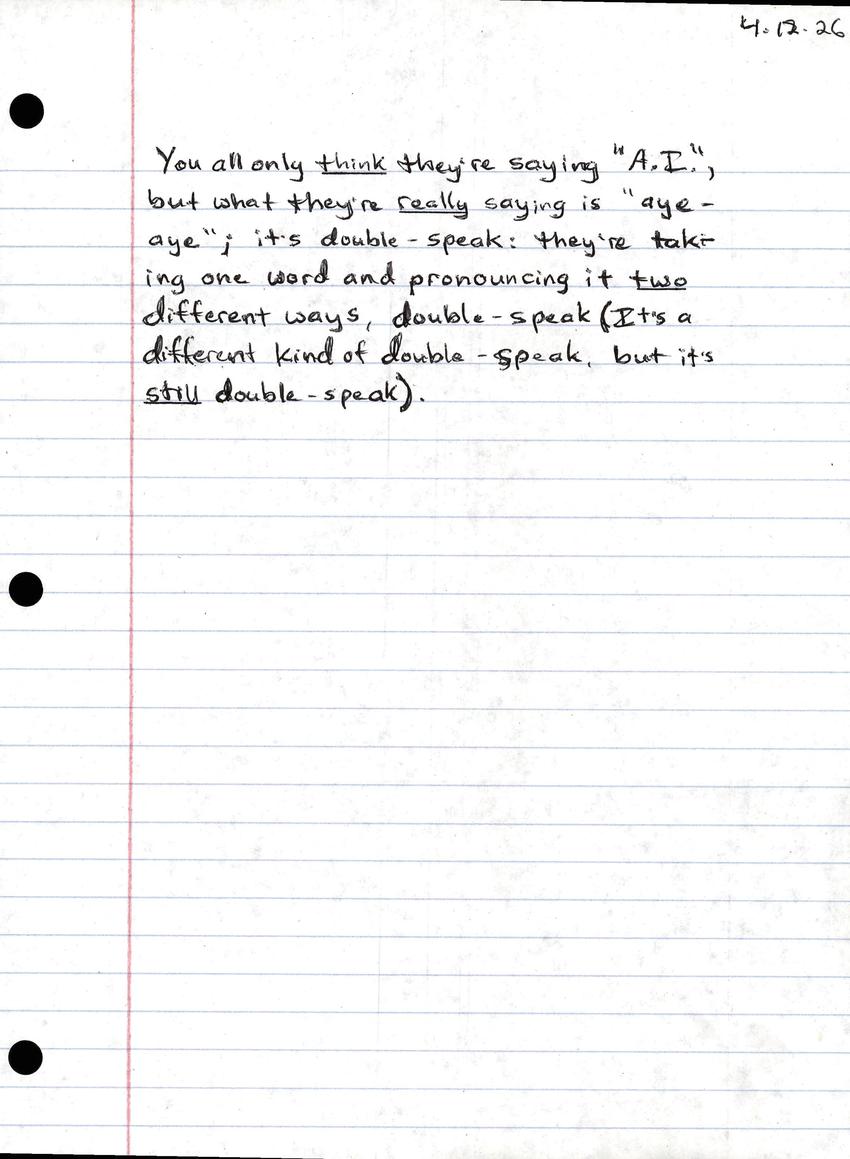 4.12.26
You all only think they're saying "A.I.",
but what they're really saying is "aye-
aye"; it's double-speak: they're tak-
ing one word and pronouncing it two
different ways, double-speak (It's a
different kind of double-speak, but it's
still double-speak).